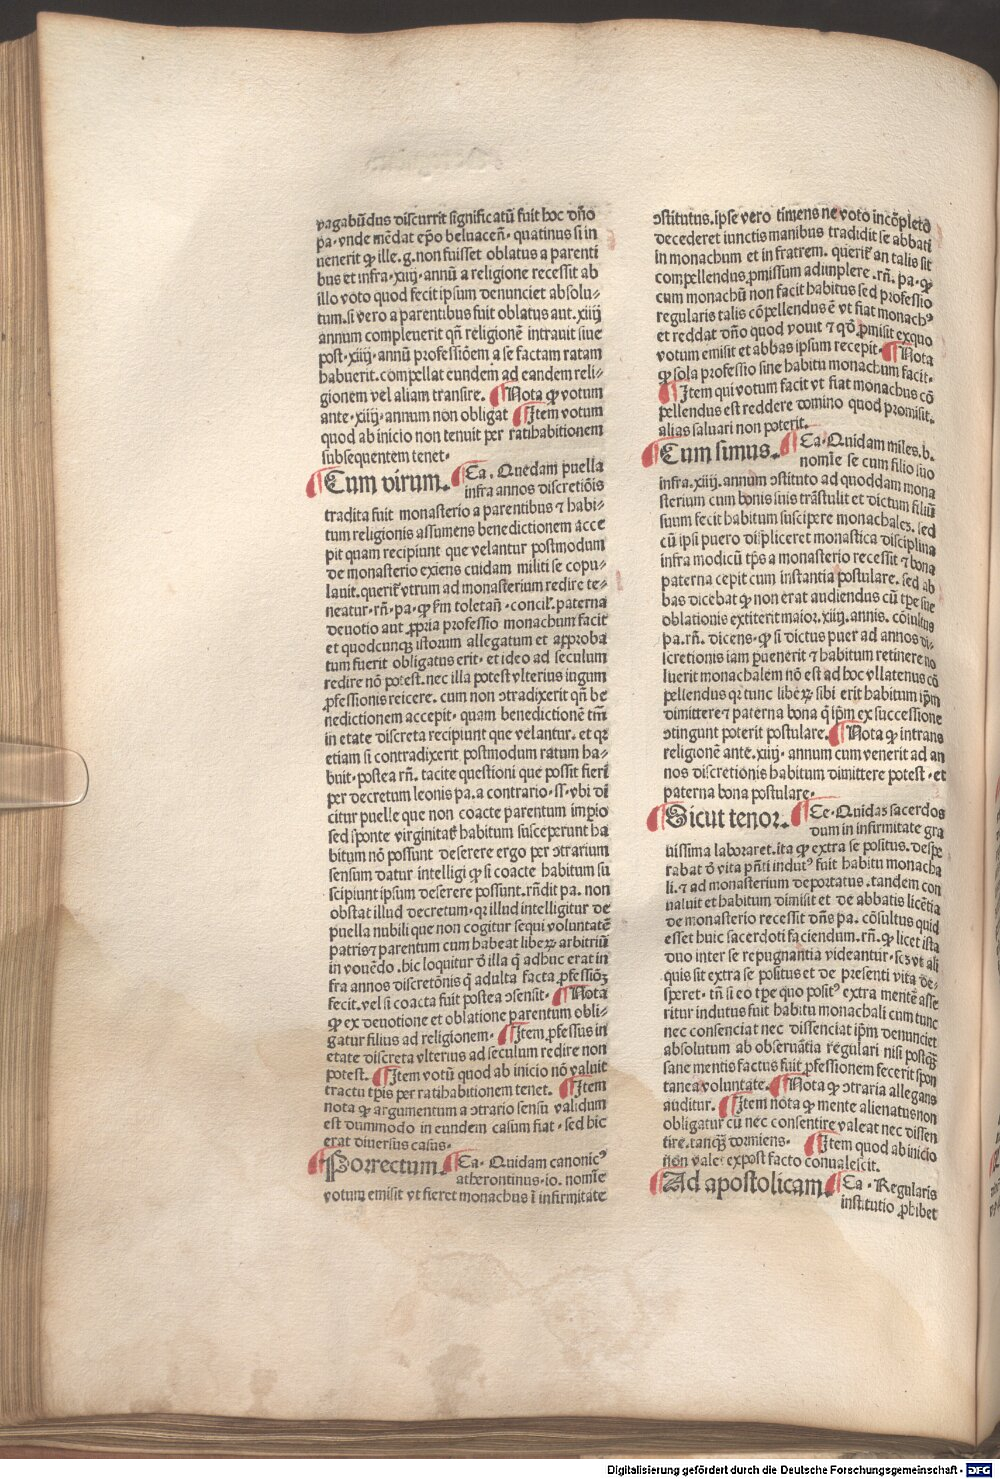 vagabūdus discurrit significatū fuit hoc dn̄o
pa·vnde mēdat ep̄o beluaceñ·quatinus si in
uenerit ꝙ ille.g.non fuisset oblatus a parenti
bus et infra·xiiij·annū a religione recessit ab
illo voto quod fecit ipsum denunciet absolu⸗
tum.si vero a parentibus fuit oblatus aut.xiiij
annum compleuerit qñ religionē intrauit siue
post·xiiij·annū professiōem a se factam ratam
habuerit.compellat eundem ad eandem reli⸗
gionem vel aliam transire. ¶Nota ꝙ votum
ante·xiiij·annum non obligat ¶Item votum
quod ab inicio non tenuit per ratihabitionem
subsequentem tenet·
¶Cum virum. ¶Ca. Quedam puella
infra annos discretiōis
tradita fuit monasterio a parentibus ⁊ habi⸗
tum religionis assumens benedictionem acce
pit quam recipiunt que velantur postmodum
de monasterio exiens cuidam militi se copu⸗
lauit.querit᷑ vtrum ad monasterium redire te⸗
neatur·rñ·pa·ꝙ fm̄ toletañ·concil᷑.paterna
deuotio aut ꝓpria professio monachum facit
et quodcunqꝫ istorum allegatum et approba
tum fuerit obligatus erit·et ideo ad seculum
redire nō potest.nec illa potest vlterius iugum
ꝓfessionis reicere. cum non ↄtradixerit qñ be
nedictionem accepit·quam benedictionē tm̄
in etate discreta recipiunt que velantur.et qꝛ
etiam si contradixerit postmodum ratum ha⸗
buit·postea rñ. tacite questioni que possit fieri
per decretum leonis pa.a contrario·ss·vbi di
citur puelle que non coacte parentum impio
sed sponte virginitat᷑ habitum susceperunt ha
bitum nō possunt deserere ergo per ↄtrarium
sensum datur intelligi ꝙ si coacte habitum su
scipiunt ipsum deserere possunt.rñdit pa. non
obstat illud decretum·qꝛ illud intelligitur de
puella nubili que non cogitur sequi voluntatē
patris⁊ parentum cum habeat liberꝫ arbitriū
in vouēdo.hic loquitur d̄ illa q̄ adhuc erat in
fra annos discretōnis q̄ adulta facta ꝓfessiōꝫ
fecit.vel si coacta fuit postea ↄsensit· ¶Nota
ꝙ ex deuotione et oblatione parentum obli⸗
gatur filius ad religionem· ¶Item ꝓfessus in
etate discreta vlterius ad seculum redire non
potest. ¶Item votū quod ab inicio nō valuit
tractu tp̄is per ratihabitionem tenet. ¶Item
nota ꝙ argumentum a ↄtrario sensu validum
est dummodo in eundem casum fiat·sed hic
erat diuersus casus·
¶Porrectum. ¶Ca·Quidam canonicꝰ
atherontinus·io. nomīe
votum emisit vt fieret monachus ī infirmitate
ↄstitutus.ipse vero timens ne voto incōpleto
decederet iunctis manibus tradidit se abbati
in monachum et in fratrem. querit᷑ an talis sit
compellendus ꝓmissum adimplere.rñ. pa·ꝙ
cum monachū non facit habitus sed professio
regularis talis cōpellendus ē vt fiat monachꝰ
et reddat dn̄o quod vouit ⁊ qd̄ ꝓmisit exquo
votum emisit et abbas ipsum recepit·¶Nota
ꝙ sola professio sine habitu monachum facit·
¶Item qui votum facit vt fiat monachus cō
pellendus est reddere domino quod promisit.
alias saluari non poterit.
¶Cum simus. ¶Ca·Quidam miles.b.
nomīe se cum filio suo
infra.xiiij.annum ↄstituto ad quoddam mona
sterium cum bonis suis trāstulit et dictum filiū
suum fecit habitum suscipere monachales. sed
cū ipsi puero displiceret monastica disciplina
infra modicū tp̄s a monasterio recessit ⁊ bona
paterna cepit cum instantia postulare. sed ab
bas dicebat ꝙ non erat audiendus cū tp̄e sue
oblationis extiterit maior.xiiij.annis. cōiulius
pa.rñ. dicens·ꝙ si dictus puer ad annos di⸗
scretionis iam ꝑuenerit ⁊ habitum retinere no
luerit monachalem nō est ad hoc vllatenus cō
pellendus qꝛ tunc liberꝫ sibi erit habitum ip̄m
dimittere⁊ paterna bona q̄ ip̄m ex successione
ↄtingunt poterit postulare.¶Nota ꝙ intrans
religionē ante.xiiij·annum cum venerit ad an
nos discretionis habitum dimittere potest·et
paterna bona postulare·
¶Sicut tenor. ¶Ce·Quidas sacerdos
dum in infirmitate gra
uissima laboraret.ita ꝙ extra se positus.despe
rabat d̄ vita pn̄ti indutꝰ fuit habitu monacha
li.⁊ ad monasterium deportatus.tandem con
ualuit et habitum dimisit et de abbatis licētia
de monasterio recessit dn̄s pa. cōsultus quid
esset huic sacerdoti faciendum.rñ.ꝙ licet ista
duo inter se repugnantia videantur·scꝫ vt ali
quis sit extra se positus et de presenti vita de⸗
speret·tñ si eo tp̄e quo positꝰ extra mentē asse
ritur indutus fuit habitu monachali cum tunc
nec consenciat nec dissenciat ip̄m denunciet
absolutum ab obseruātia regulari nisi postqꝫ
sane mentis factus fuit ꝓfessionem fecerit spon
tanea voluntate.¶Nota ꝙ ↄtraria allegans
auditur. ¶Item nota ꝙ mente alienatus non
obligatur cū nec consentire valeat nec dissen
tire.tanqꝫ dormiens· ¶Item quod ab inicio
non valet expost facto conualescit.
¶Ad apostolicam. ¶Ca·Regularis
institutio ꝓhibet
Digitalisierung gefördert durch die Deutsche Forschungsgemeinschaft - DFG